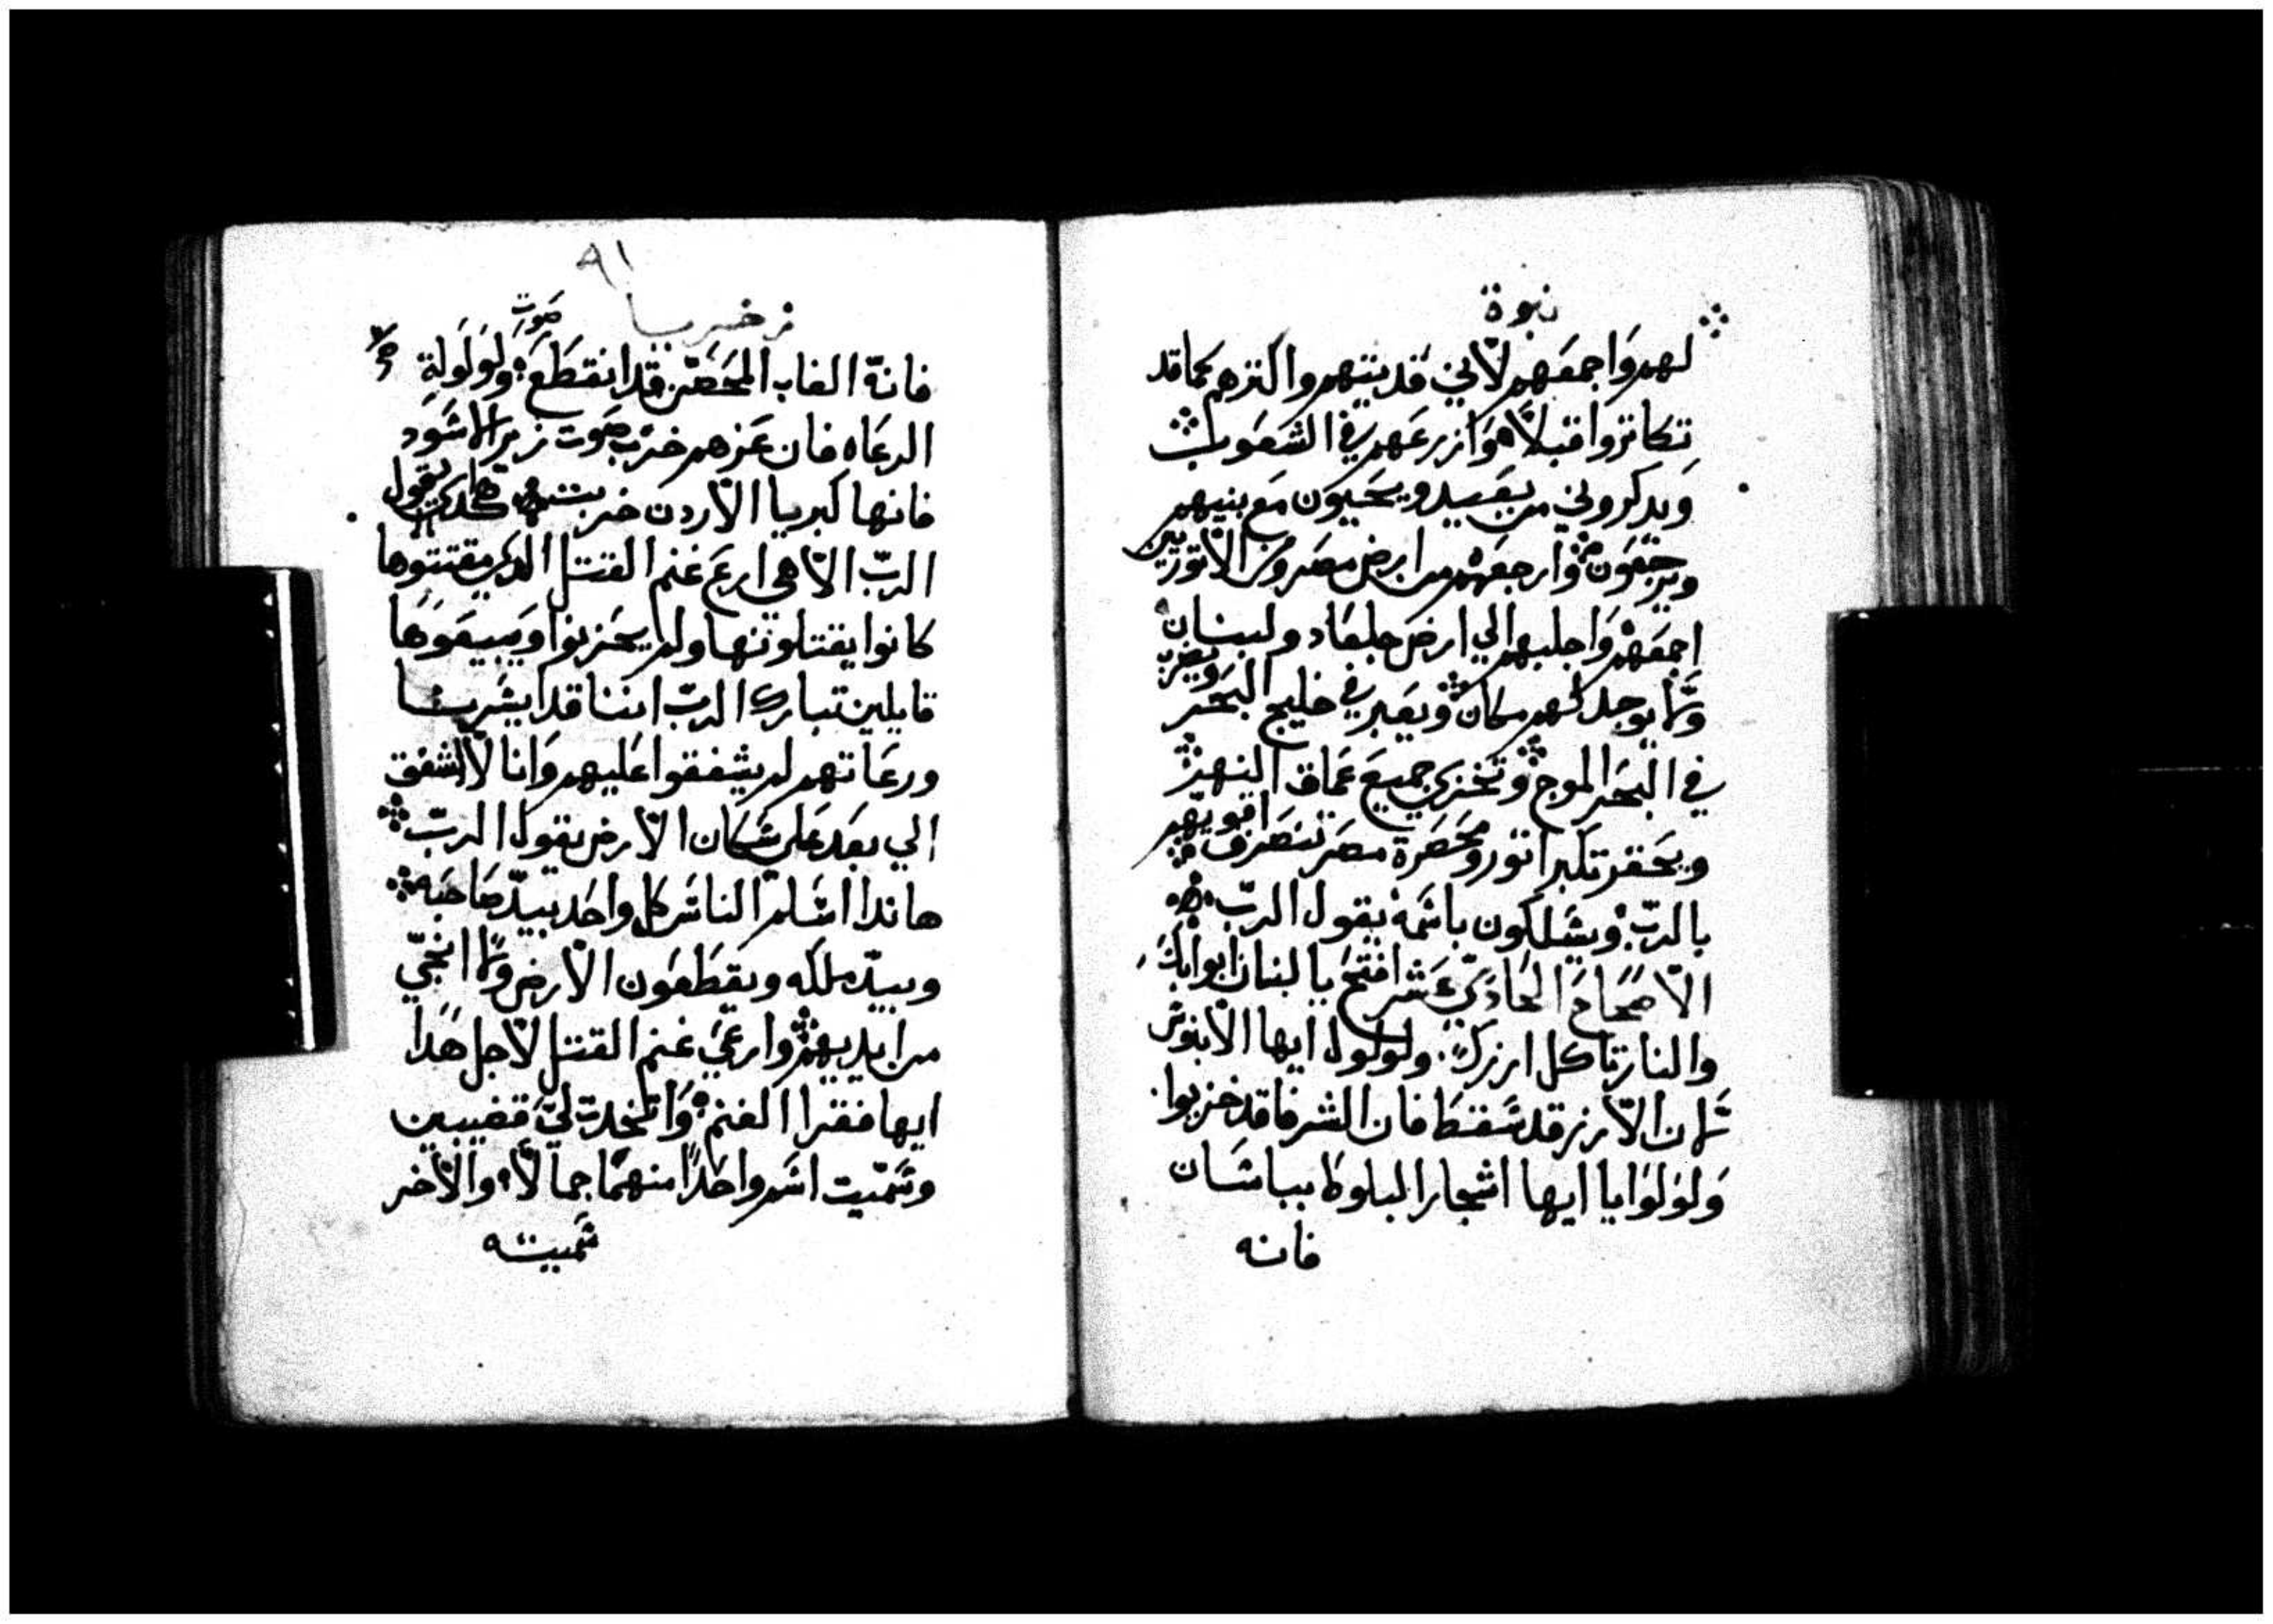 نبوة
لهم واجمعهم لاني قد بتهم واكثرهم كما قد
تكاثروا قبلاً وازرعهم في الشعوب
ويدكروني من بعيد ويحيون مع بنيهم
ويرجعون وارجعهم من ارض مصر ومن الاتوريين
اجمعهم واجلبهم الي ارض جلعاد ولبنان
ولا يوجد لهم مكان ويعبر في خليج البحر ويضرب
في البحر الموج وتخزي جميع عماق النهر
ويحقر تكبر اتور ومحصرة مصر تنصرف اقويهم
بالرب ويسلكون باسمه يقول الرب
الاصحاح الحادي عشر افتح يا لبنان ابوابك
والنار تاكل ارزك ولولول ايها الابنوس
لان الارز قد سقط فان الشرفا قد خربوا
ولولوا يا ايها اشجار البلوط ببباسان
فانه
٩١
زخريا
فانه الغاب المحصن قد انقطع صوت ولولولة
الرعاه فان عزهم خرب صوت زير الاسود
فانها كبريا الاردن خربت هكدى يقول
الرب الاهي ارع غنم القتل الدي مقتنوها
كانوا يقتلونها ولم يحزنوا ويبيعوها
قايلين تبارك الرب اننا قد ايسرنا
ورعاتهم لم يشفقوا عليهم وانا لا اشفق
الي بعد علي سكان الارض يقول الرب
هاندا اسلم الناس كل واحد بيد صاحبه
وبيد ملكه ويقطعون الارض ولا انجي
من ايديهم وارعي غنم القتل لاجل هدا
ايها فقرا الغنم واتخدت لي قضيبين
وسميت اسم واحدا منهما جمالاً والاخر
سميته